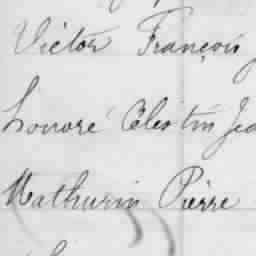 Victor François
honoré Célestin
Mathurin Pierre